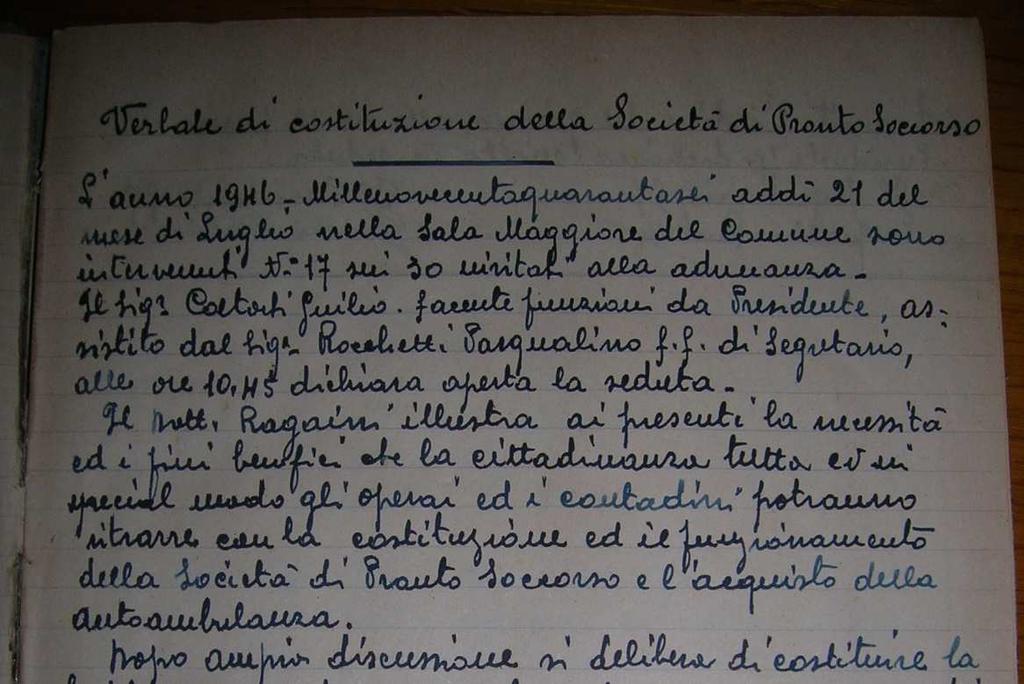 Verbale di costituzione della Società di Pronto Soccorso
L'anno 1946 - Millenovecentaquarantasei addì 21 del
mese di Luglio nella Sala Maggiore del Comune sono
intervenuti N.º 17 sui 30 invitati alla adunanza -
Il Sigr Giulio. facente funzioni da Presidente, as=
sistito dal Sigr Rocchetti Pasqualino f.f. di Segretario,
alle ore 10,45 dichiara aperta la seduta -
Il Dott. Ragaini illustra ai presenti la necessità
ed i fini benefici che la cittadinanza tutta ed in
special modo gli operai ed i contadini potranno
ritrarre con la costituzione ed il funzionamento
della Società di Pronto Soccorso e l'acquisto della
autoambulanza.
Dopo ampia discussione si delibera di costituire la